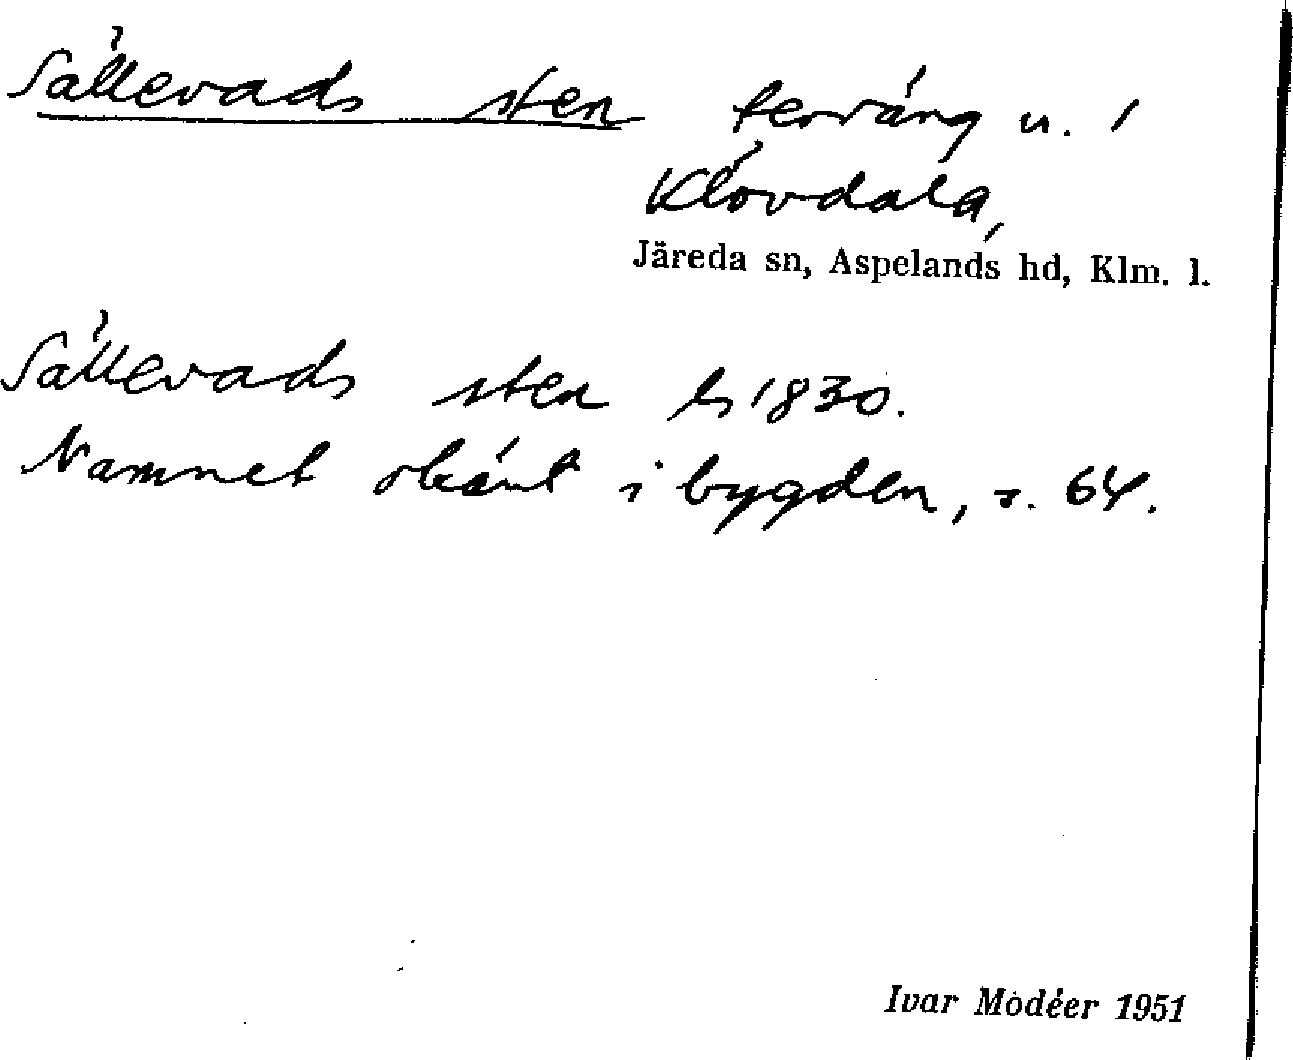 Sällevads sten terräng u. /
Klövdala,
Järeda sn, Aspelands hd, Klm. l.
Sällevads sten ls 1830.
Namnet okänt i bygden, s. 64.
Ivar Modéer 1951